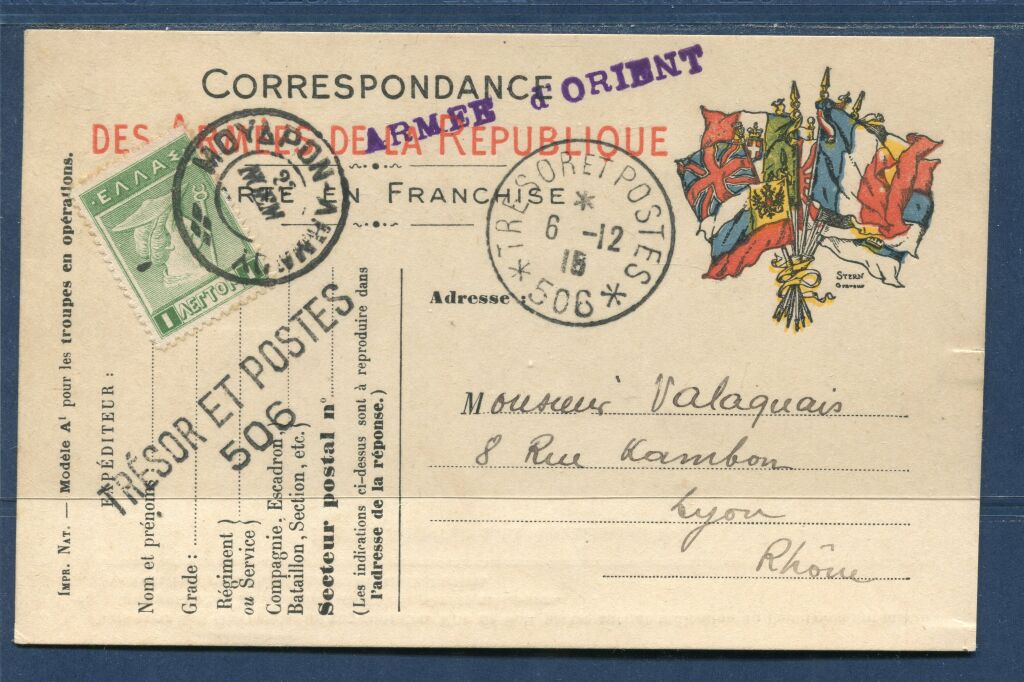 CORRESPONDANCE
ARMEE d'ORIENT
DES ARMÉES DE LA RÉPUBLIQUE
EN FRANCHISE
ΕΛΛΑΣ
1 ΛΕΠΤΟΝ
ΜΟΥΔΡΟΝ
TRESOR ET POSTES
6 -12
15
* 506 *
STERN
Graveur
Adresse :
Monsieur Valaquais
8 Rue Cambon
Lyon
Rhône
TRÉSOR ET POSTES
506
IMPR. NAT. — Modèle A¹ pour les troupes en opérations.
EXPÉDITEUR :
Nom et prénoms
Grade :
Régiment
ou Service)
Compagnie, Escadron,
Bataillon, Section, etc.)
Secteur postal n°
(Les indications ci-dessus sont à reproduire dans
l'adresse de la réponse.)